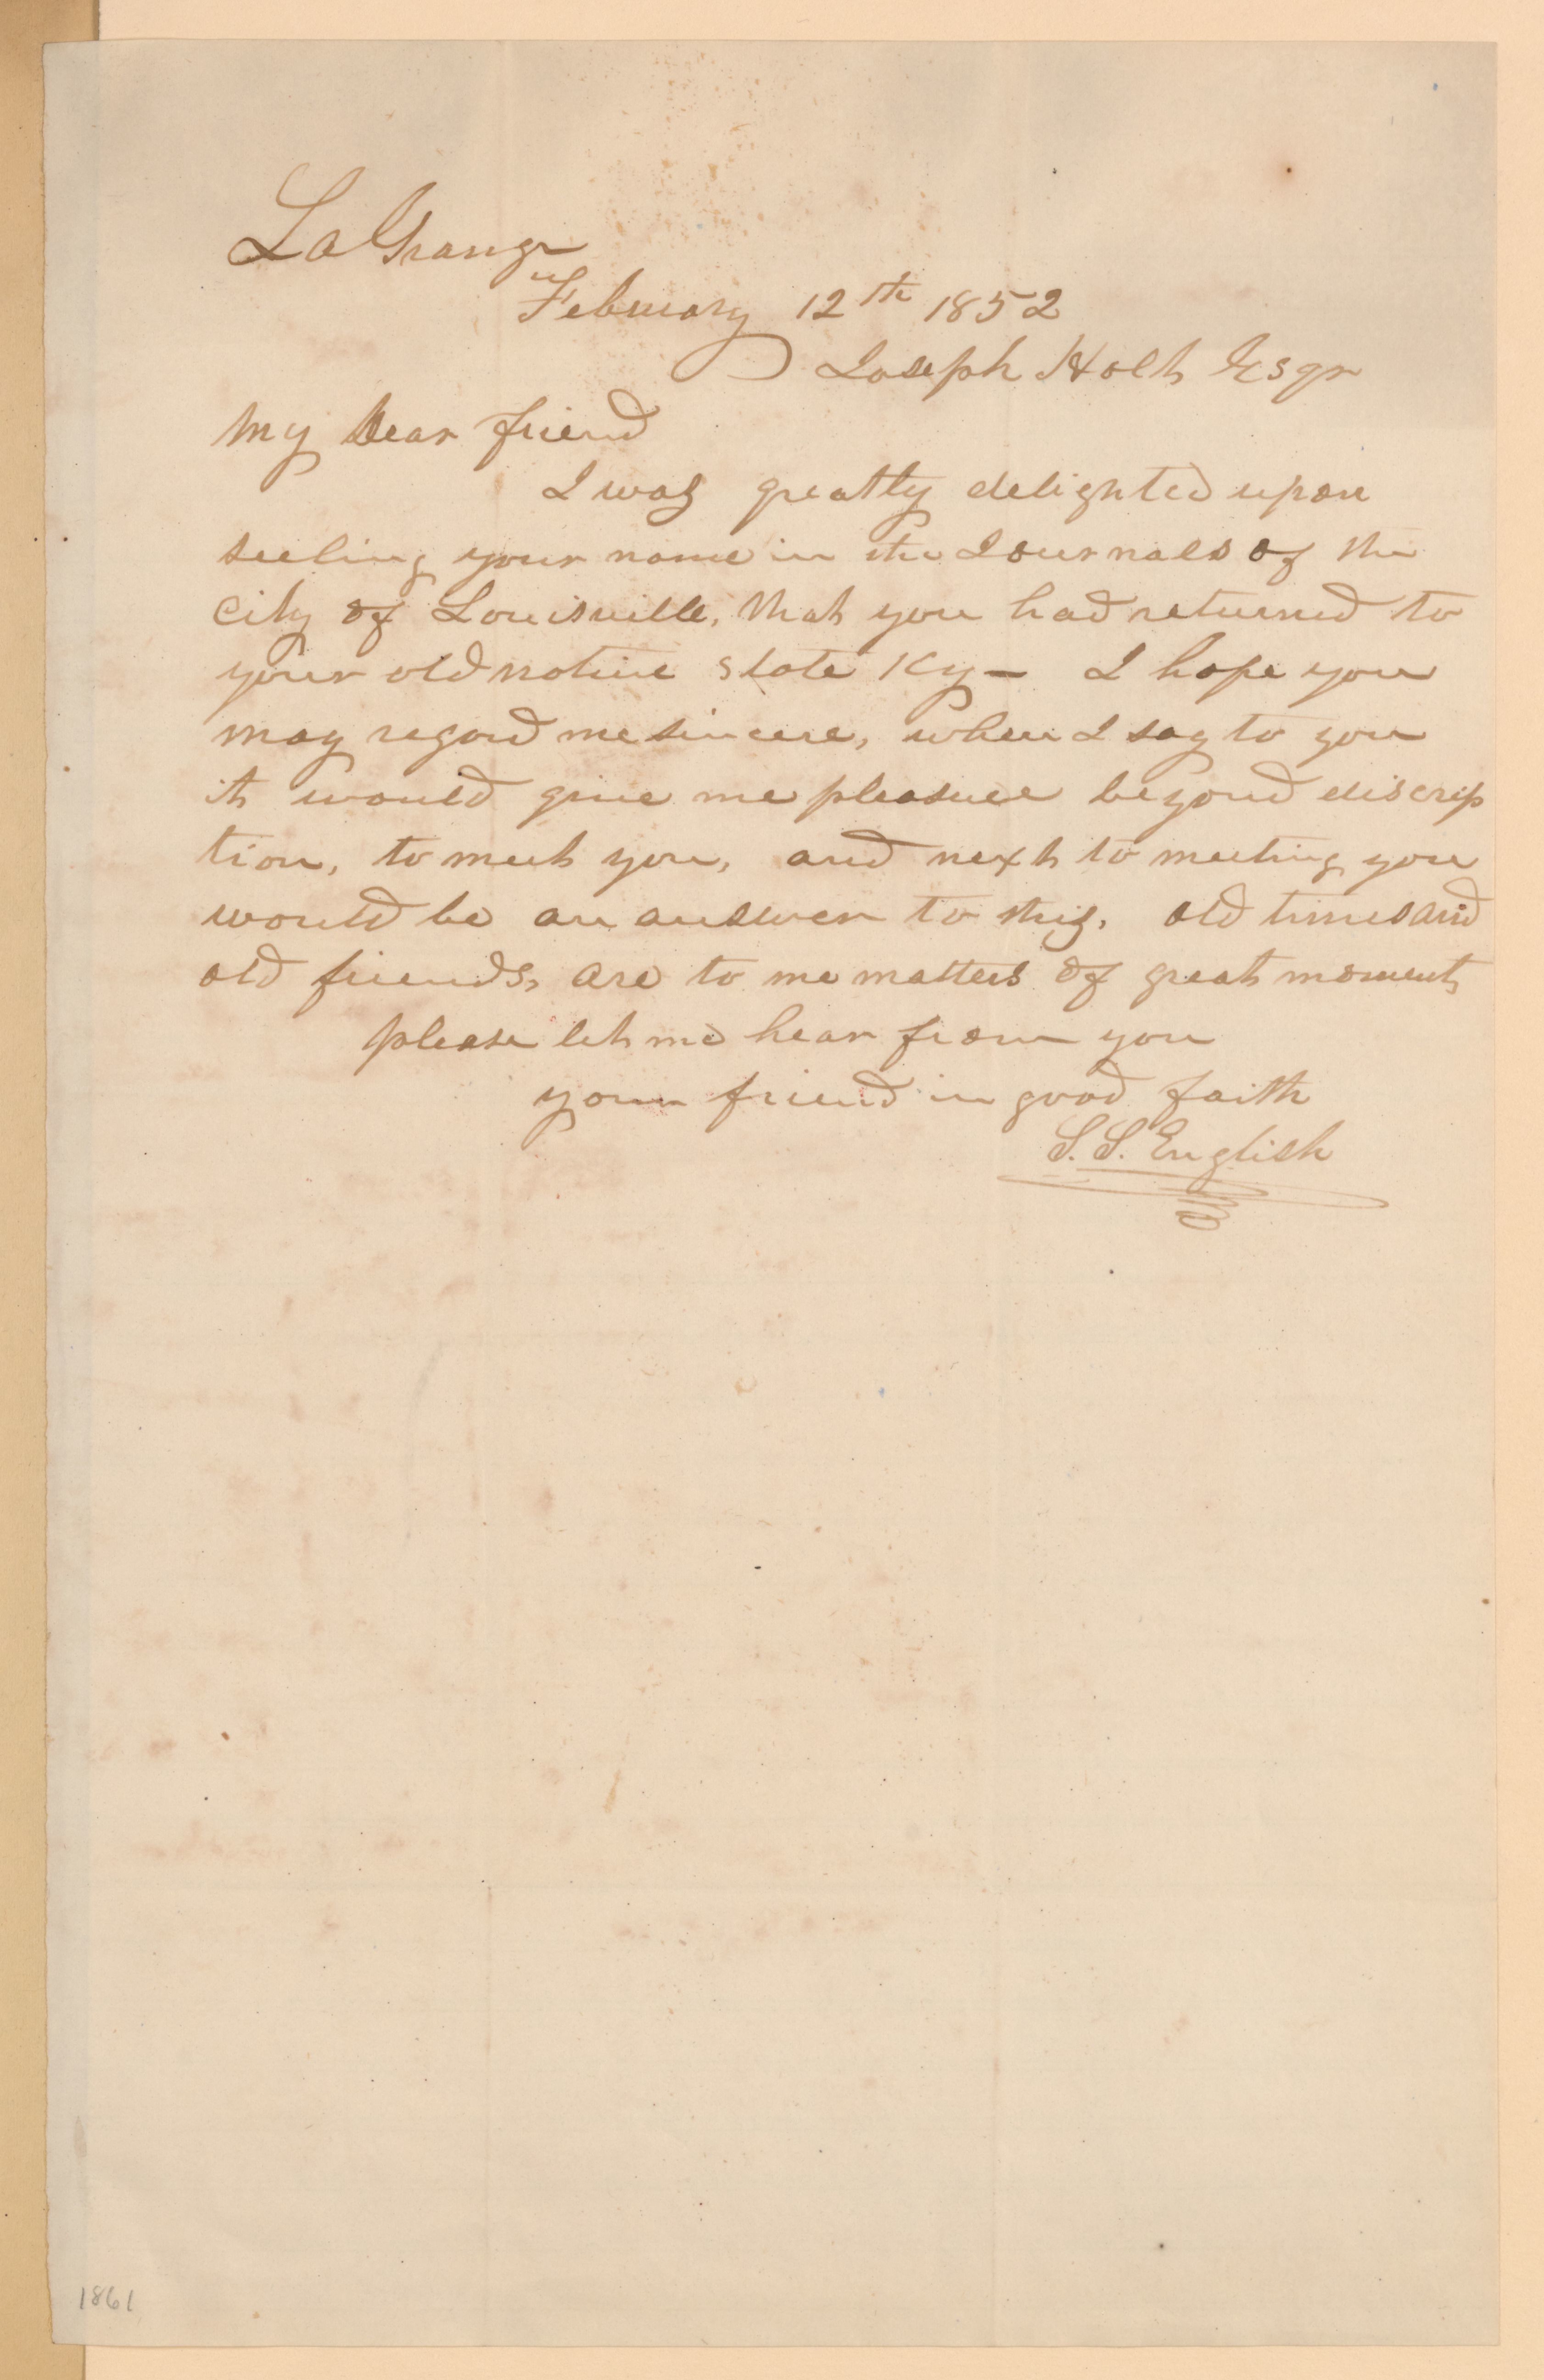 LaGrange
February 12th 1852
Joseph Holt Esqr
My Dear friend
I was greatly delighted upon
seeling your name in the Journals of the
City of Louisville, that you had returned to
your old native state Ky— I hope you
may regard me sincere, when I say to you
it would give me pleasure beyond discrip
tion, to meet you, and next to meeting you
would be an answer to this. old times and
old friends, are to me matters of great moment,
please let me hear from you
your friend in good faith
S. S. English
1861